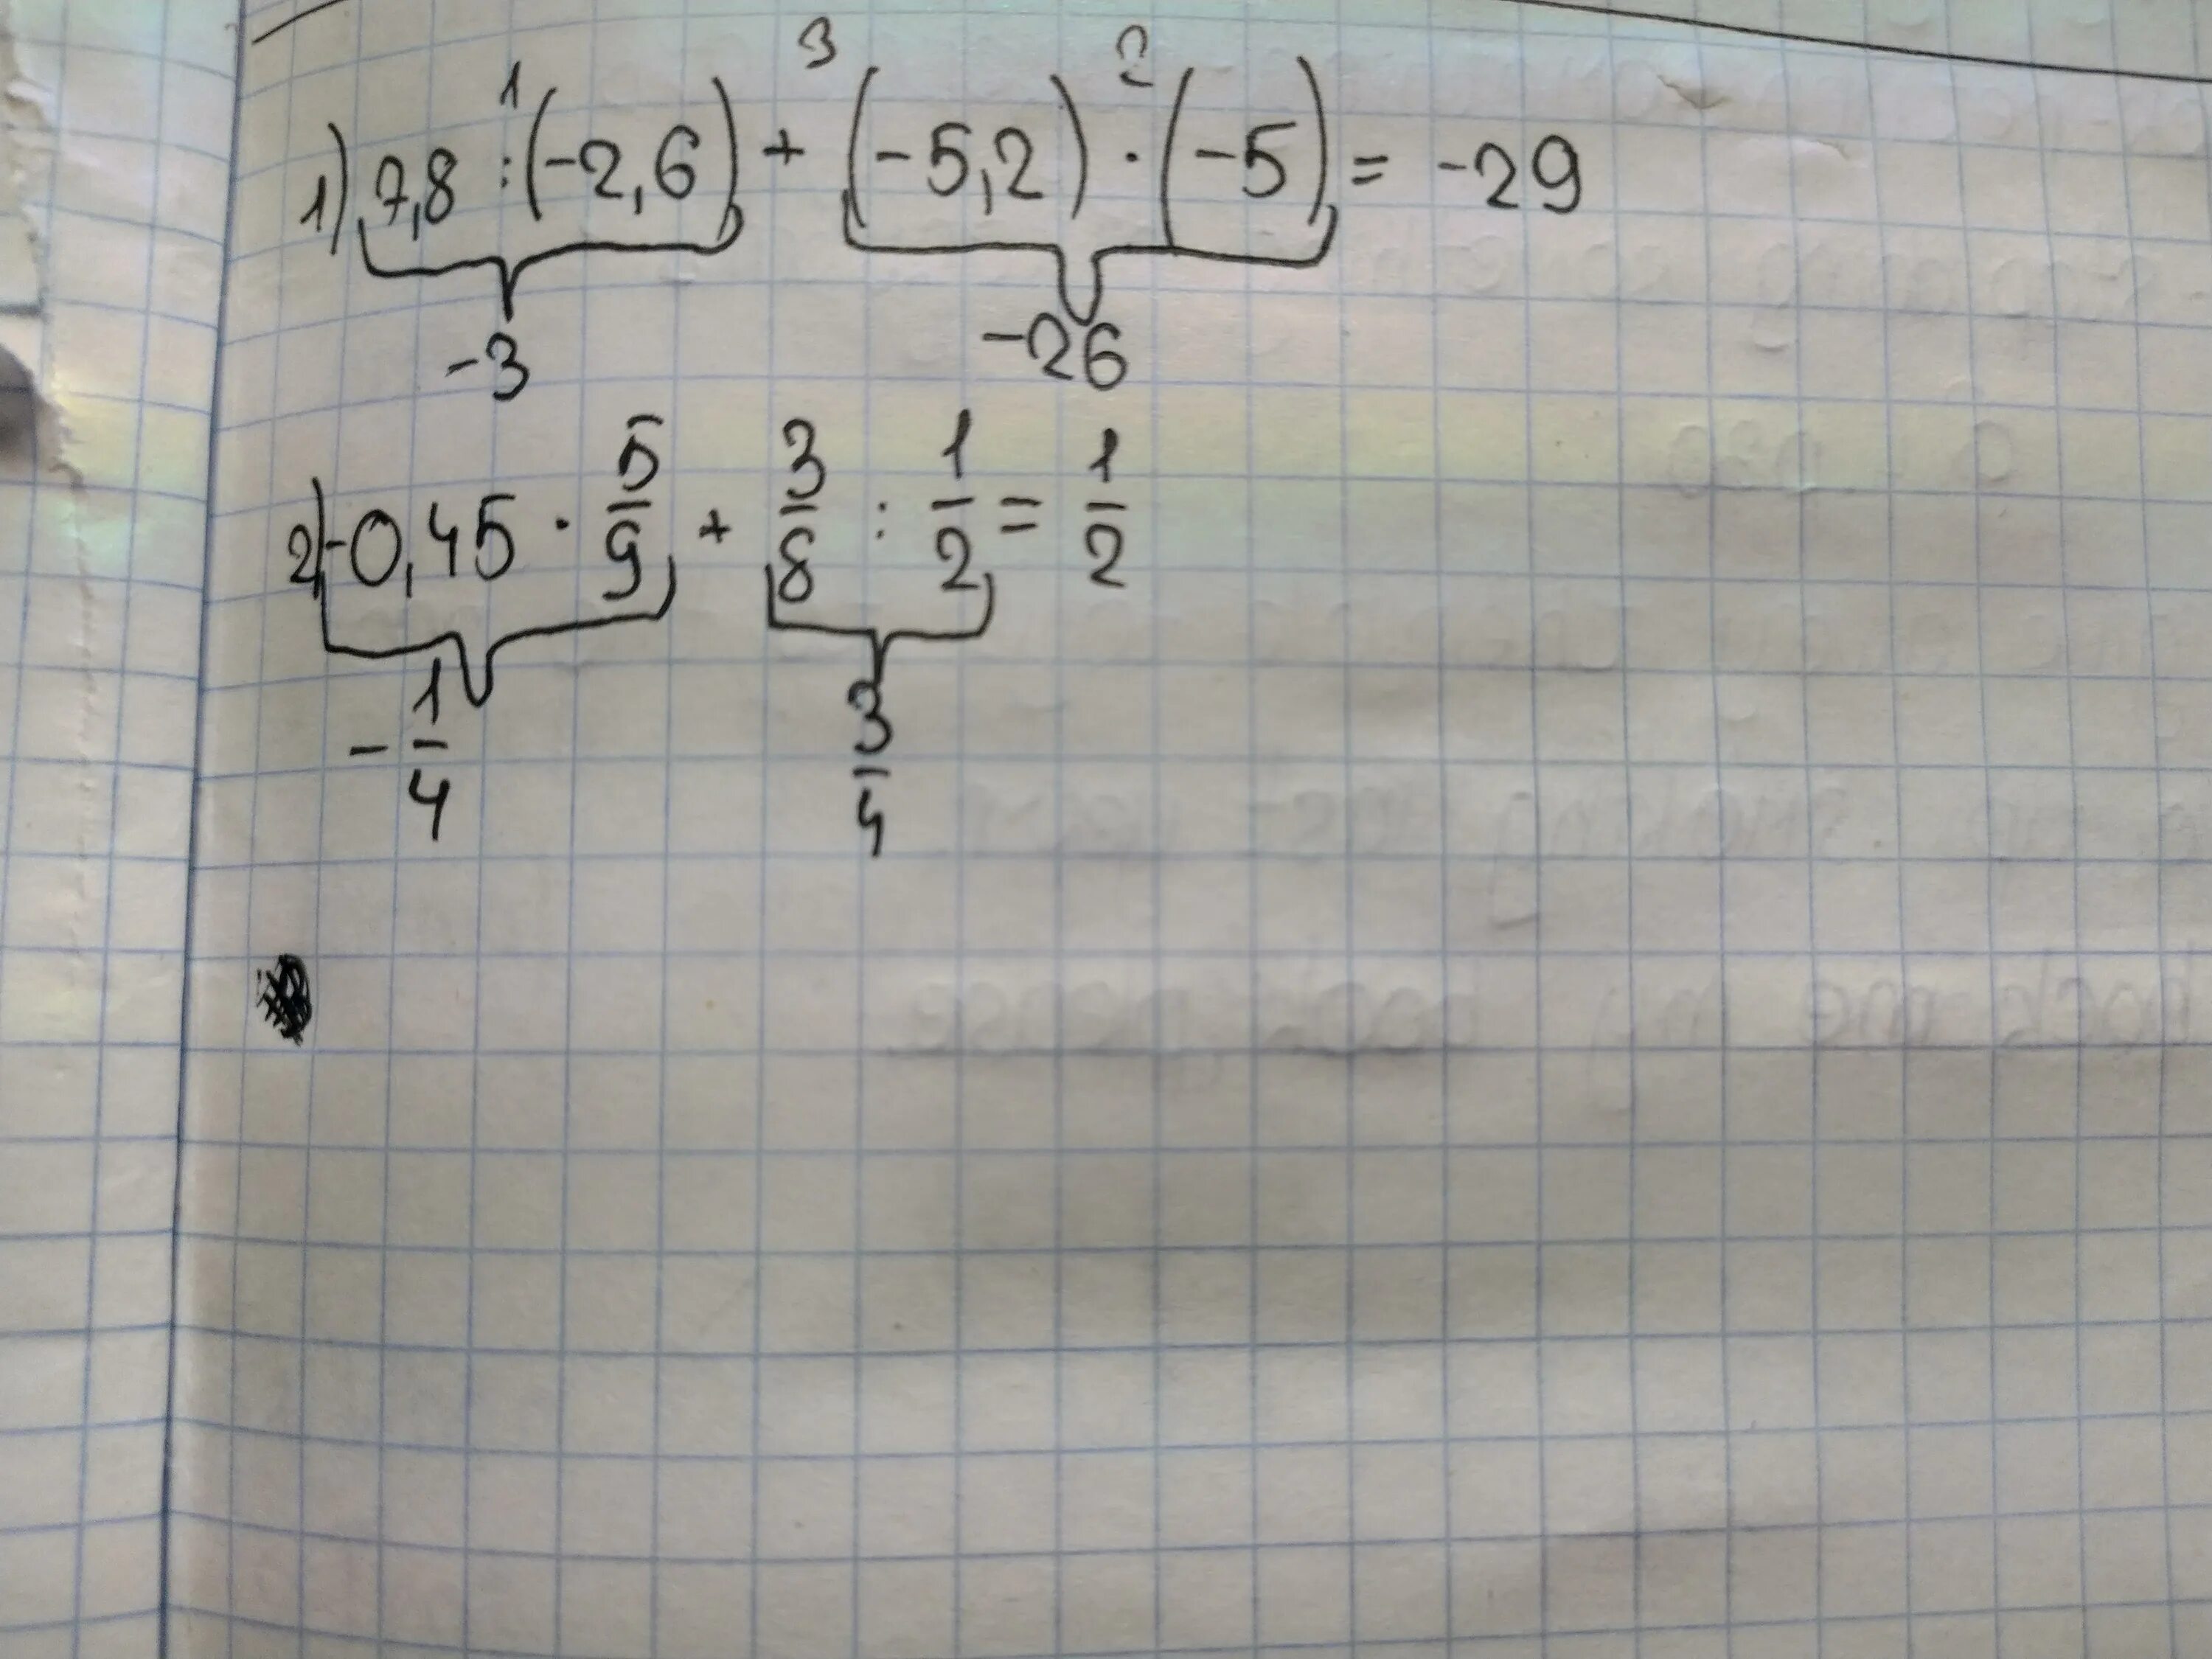 1 3 2
1) 7,8 : (-2,6) + (-5,2) · (-5) = -29
-3 -26
2) -0,45 · 5/9 + 3/8 : 1/2 = 1/2
-1/4 3/4